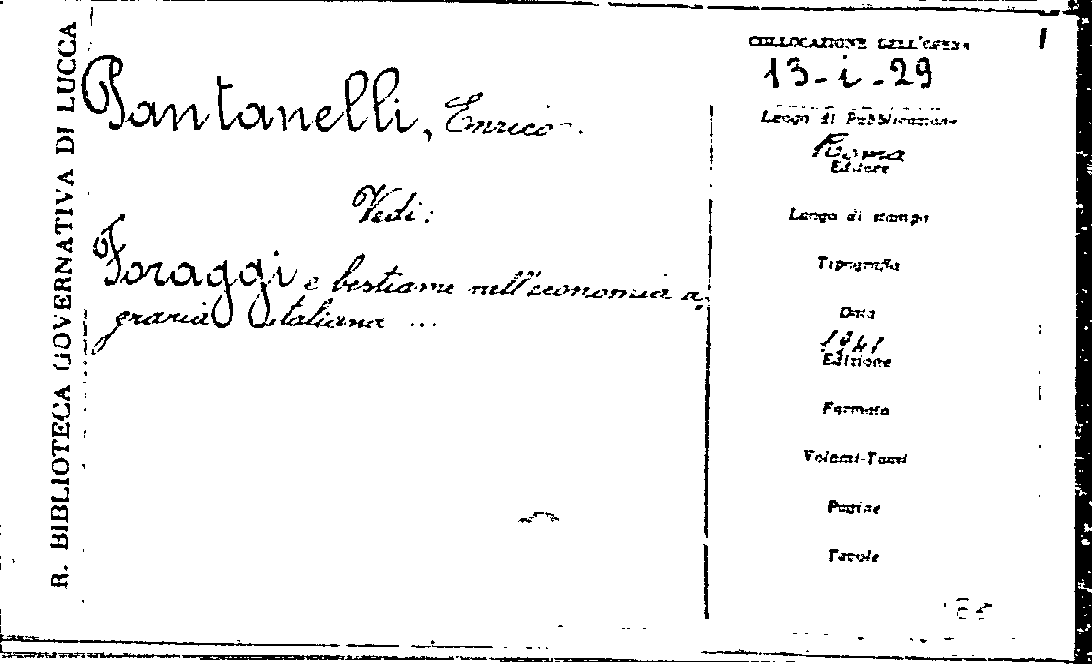 R. BIBLIOTECA GOVERNATIVA DI LUCCA
Pantanelli, Enrico.
Vedi:
Foraggi e bestiame nell'economia a-
graria italiana ...
COLLOCAZIONE DELL'OPERA
13-i-29
Luogo di Pubblicazione
Roma
Editore
Luogo di stampa
Tipografia
Data
1941
Edizione
Formato
Volumi-Tomi
Pagine
Tavole